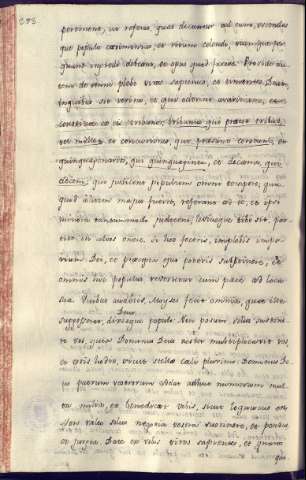 293
pertinent, ut referas, quae dicuntur ad eum, ostendas
que populo caeremonias, et ritum colendi, viamque per
quam ingredi debeant, et opus quod facere. Provide au
tem de omni plebe viros sapientes, et timentes Deum,
in quibus sit veritas, et qui oderint avaritiam, et
constitue ex eis tribunos, tribunus qui praeest tribus,
vel mille, et centuriones, qui praesint centum, et
quinquagenarios, qui quinquaginta, et decanos, qui
decem, qui judicent populum omni tempore, quid
quid autem majus fuerit, referant ad te, et ipsi
minora tantummodo judicent, leviusque tibi sit, par
tito in alios onere. Si hoc feceris, implebis imper
ium Dei, et praecepta ejus poteris sustentare, et
omnis hic populus revertetur cum pace ad loca
sua. Quibus auditis, Moyses fecit omnia, quae ille
suggesserat, dixitque populo. Non possum solus sustine
re vos, quia Dominus Deus vester multiplicavit vos
et estis hodie, sicut stellae caeli plurimi. Dominus De
us patrum vestrorum addat adhuc numerum mul
ta millia, et benedicat vobis, sicut locutus est.
Non valeo solus negotia vestra sustinere, et pondus
ac jurgia. Date ex vobis viros sapientes, et gnaros